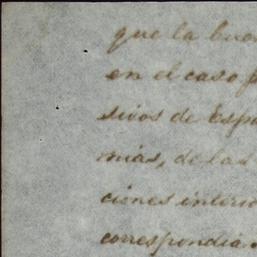 que la bue
en el caso p
sivos de Espa
nias, de las
ciones interio
correspondia